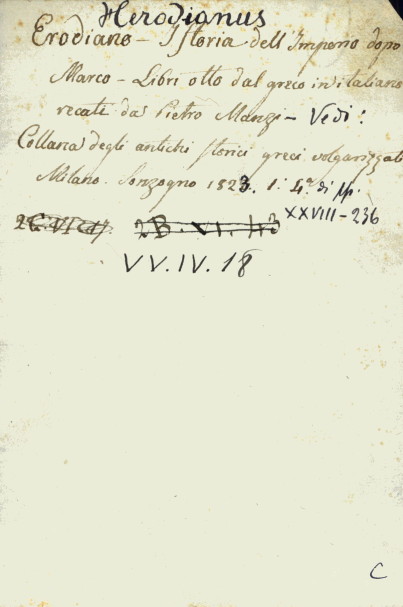 Herodianus
Erodiano - Istoria dell Impero dopo
Marco - Libri otto dal greco in italiano
recati da Pietro Manzi - Vedi:
Collana degli antichi storici greci volgarizzati
Milano. Sonzogno 1823. 1. 4.° di pp.
XXVIII-236
2B. VI.
VV. IV. 18
C